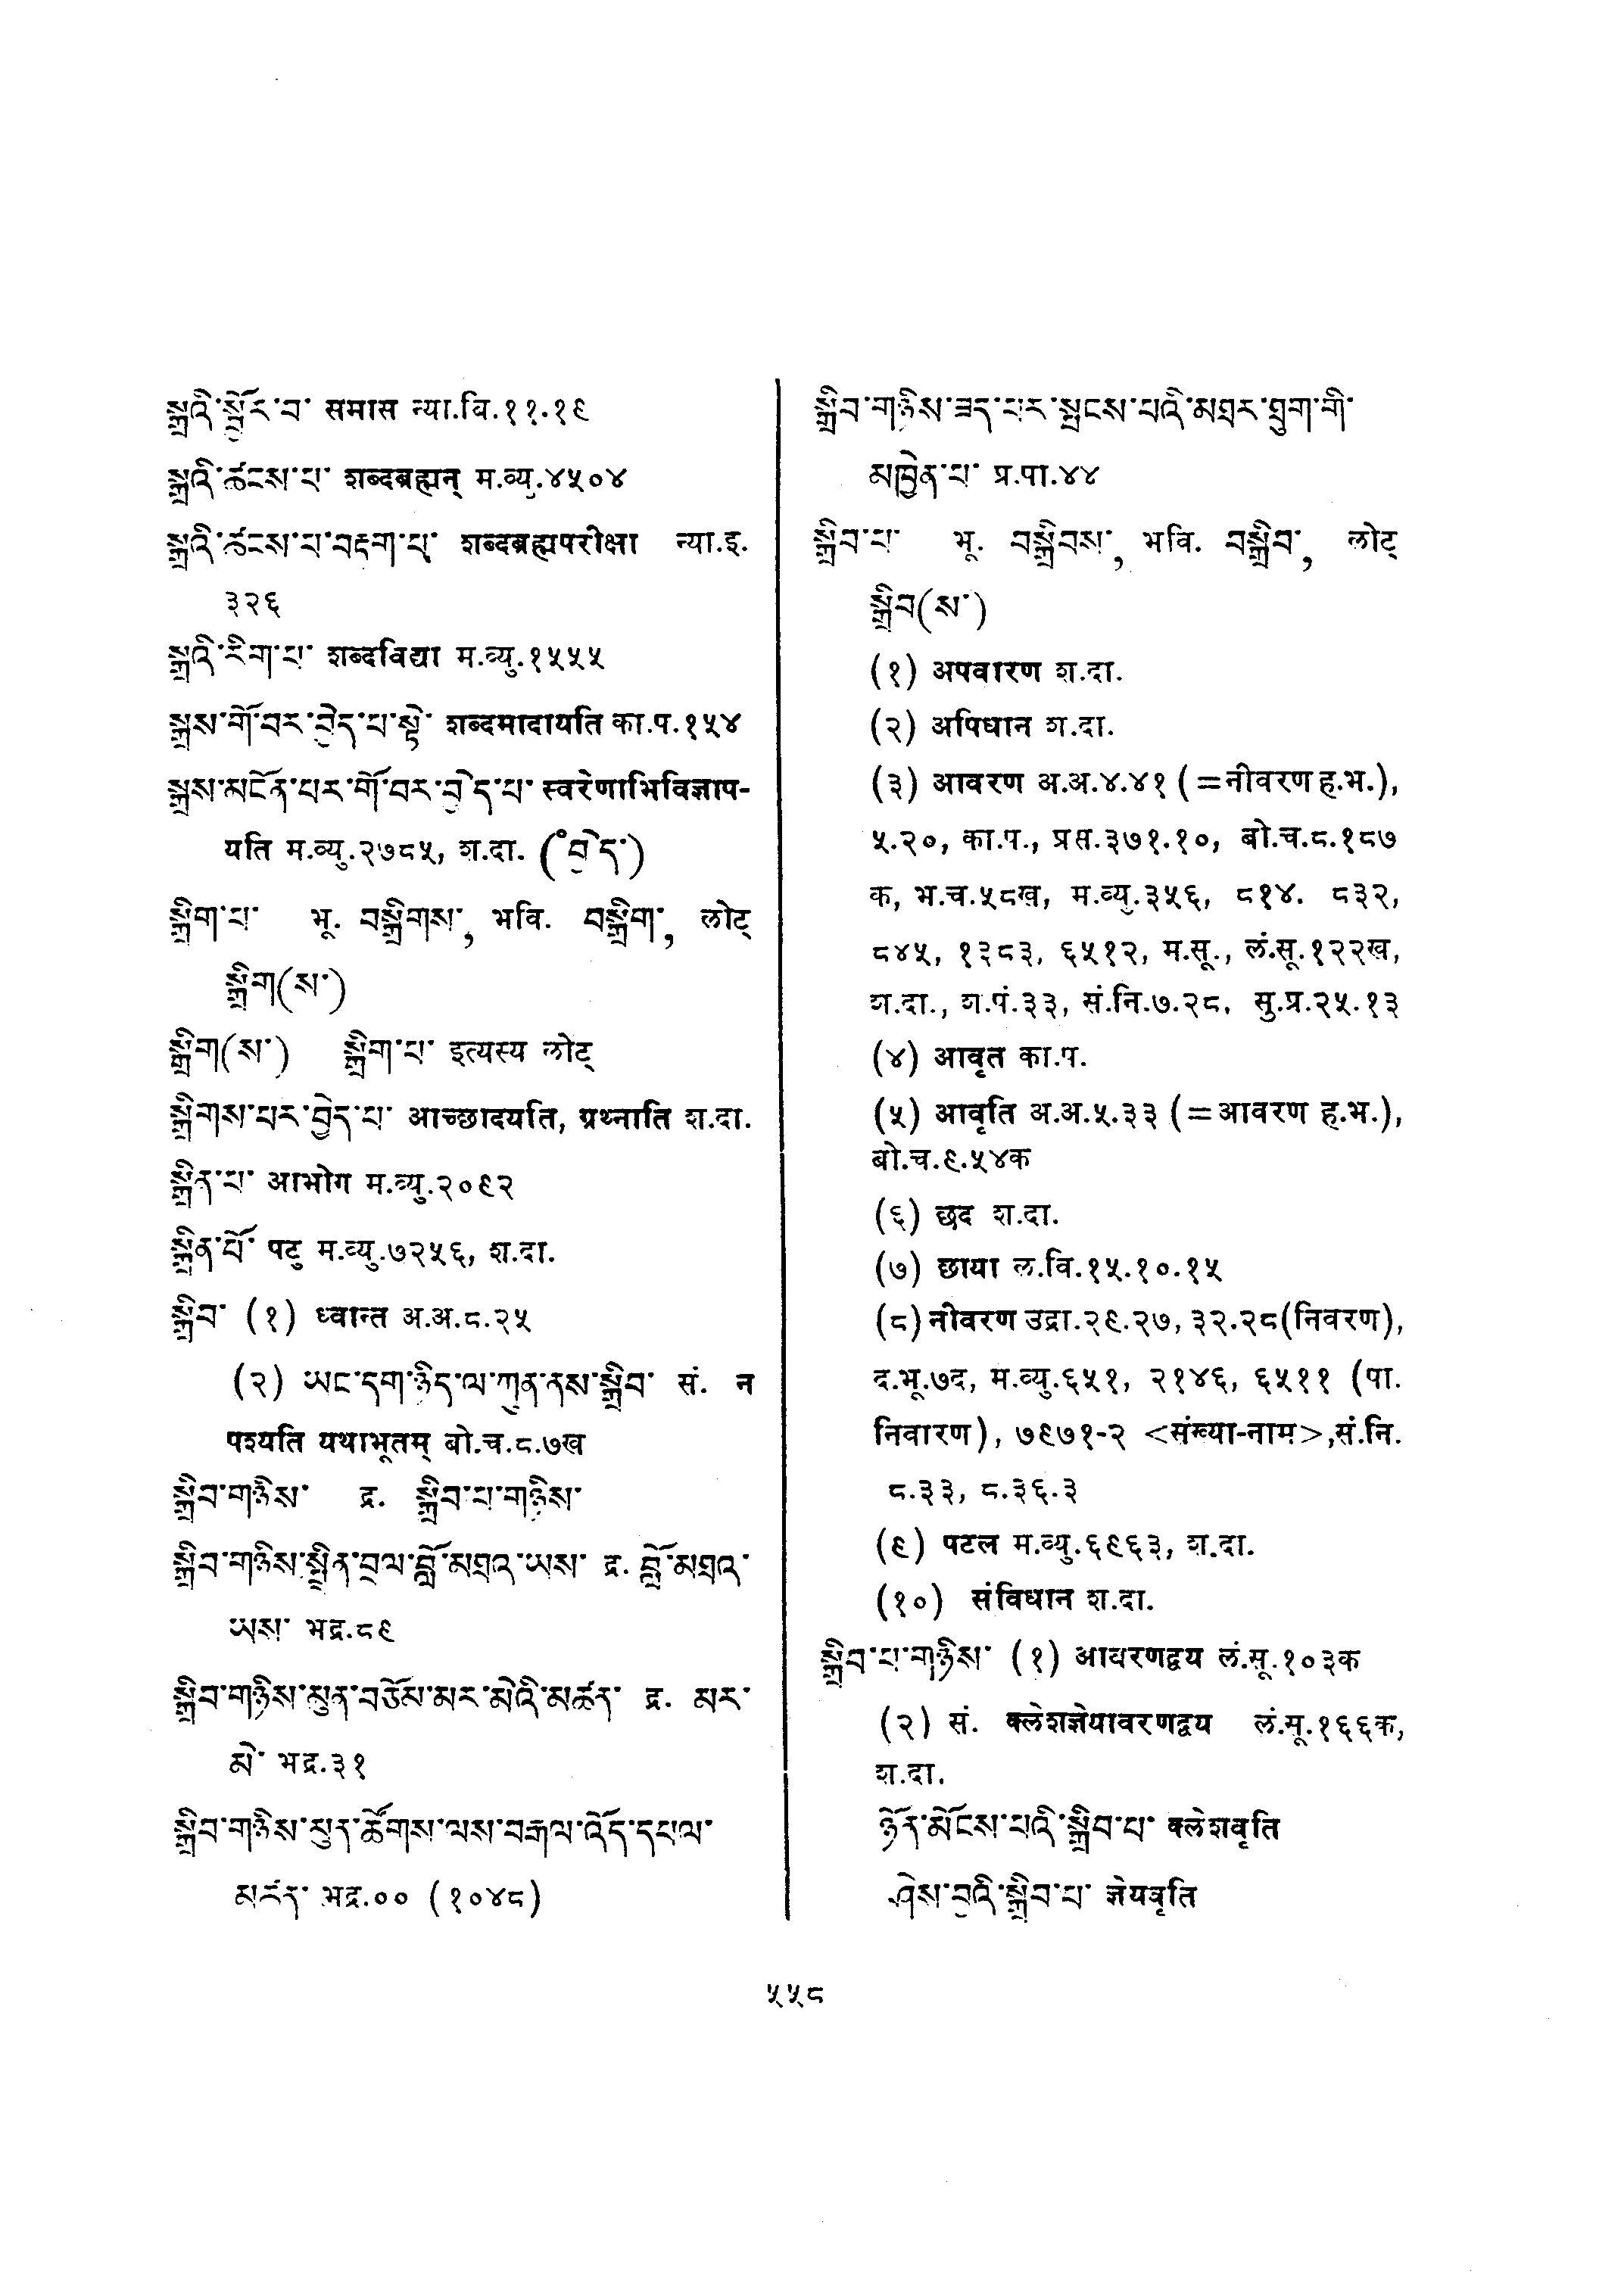 སྒྲའི་སྦྱོར་བ་ समास न्या.वि.११.१९
སྒྲའི་ཚངས་པ་ शब्दब्रह्मन् म.व्यु.४५०४
སྒྲའི་ཚངས་པ་བརྟག་པ་ शब्दब्रह्मपरीक्षा न्या.इ.
३२६
སྒྲའི་རིག་པ་ शब्दविद्या म.व्यु.१५५५
སྒྲས་གོ་བར་བྱེད་པ་སྟེ་ शब्दमादायति का.प.१५४
སྒྲས་མངོན་པར་གོ་བར་བྱེད་པ་ स्वरेणाभिविज्ञाप-
यति म.व्यु.२७८५, श.दा. (°བྱེད་)
སྒྲིག་པ་ भू. བསྒྲིགས་, भवि. བསྒྲིག་, लोट्
སྒྲིག(ས་)
སྒྲིག(ས་) སྒྲིག་པ་ इत्यस्य लोट्
སྒྲིགས་པར་བྱེད་པ་ आच्छादयति, ग्रथ्नाति श.दा.
སྒྲིན་པ་ आभोग म.व्यु.२०९२
སྒྲིན་པོ་ पटु म.व्यु.७२५६, श.दा.
སྒྲིབ་ (१) ध्वान्त अ.अ.८.२५
(२) ཡང་དག་ཉིད་ལ་ཀུན་ནས་སྒྲིབ་ सं. न
पश्यति यथाभूतम् बो.च.८.७ख
སྒྲིབ་གཉིས་ द्र. སྒྲིབ་པ་གཉིས་
སྒྲིབ་གཉིས་སྤྲིན་བྲལ་བློ་མཐའ་ཡས་ द्र. བློ་མཐའ་
ཡས་ भद्र.८९
སྒྲིབ་གཉིས་མུན་བཅོམ་མར་མེའི་མཚན་ द्र. མར་
མེ་ भद्र.३१
སྒྲིབ་གཉིས་མུན་ཚོགས་ལས་བརྒལ་འོད་དཔལ་
མངོན་ भद्र.०० (१०४८)
སྒྲིབ་གཉིས་ཟད་པར་སྤངས་པའི་མཐར་ཐུག་གི་
མཁྱེན་པ་ प्र.पा.४४
སྒྲིབ་པ་ भू. བསྒྲིབས་, भवि. བསྒྲིབ་, लोट्
སྒྲིབ(ས་)
(१) अपवारण श.दा.
(२) अपिधान श.दा.
(३) आवरण अ.अ.४.४१ (=नीवरण ह.भ.),
५.२०, का.प., प्रस.३७१.१०, बो.च.८.१८७
क, भ.च.५८ख, म.व्यु.३५६, ८१४. ८३२,
८४५, १३८३, ६५१२, म.सू., लं.सू.१२२ख,
श.दा., श.पं.३३, सं.नि.७.२८, सु.प्र.२५.१३
(४) आवृत का.प.
(५) आवृति अ.अ.५.३३ (=आवरण ह.भ.),
बो.च.९.५४क
(६) छद श.दा.
(७) छाया ल.वि.१५.१०.१५
(८) नीवरण उद्रा.२९.२७, ३२.२८(निवरण),
द.भू.७द, म.व्यु.६५१, २१४६, ६५११ (पा.
निवारण), ७९७१-२ <संख्या-नाम>,सं.नि.
८.३३, ८.३६.३
(९) पटल म.व्यु.६९६३, श.दा.
(१०) संविधान श.दा.
སྒྲིབ་པ་གཉིས་ (१) आवरणद्वय लं.सू.१०३क
(२) सं. क्लेशज्ञेयावरणद्वय लं.सू.१६६क,
श.दा.
ཉོན་མོངས་པའི་སྒྲིབ་པ་ क्लेशवृति
ཤེས་བྱའི་སྒྲིབ་པ་ ज्ञेयवृति
५५८